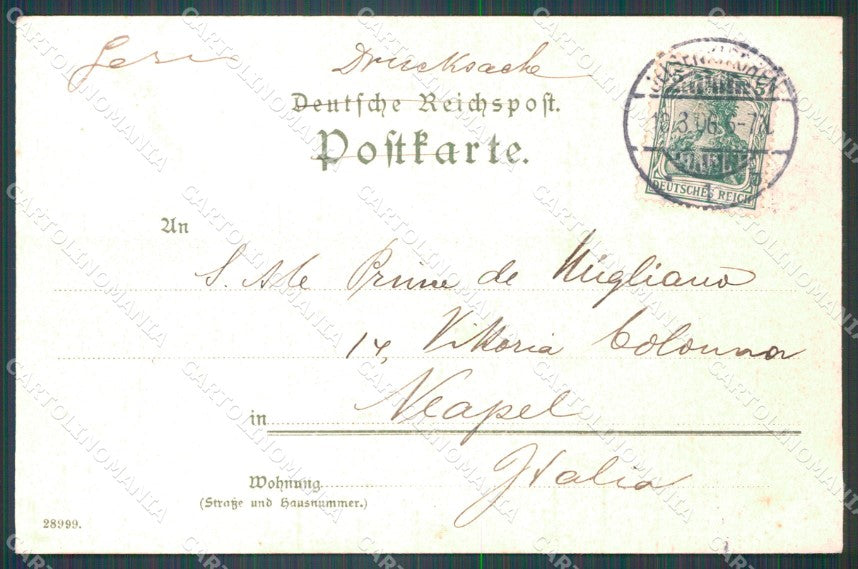 Drucksache
Deutsche Reichspost.
Postkarte.
5
18.3.06. 6-7N.
DEUTSCHES REICH
An
S. Ale Prince de Migliano
14, Viktoria Colonna
in Neapel
Italia
Wohnung
(Straße und Hausnummer.)
28999.
CARTOLINOMANIA